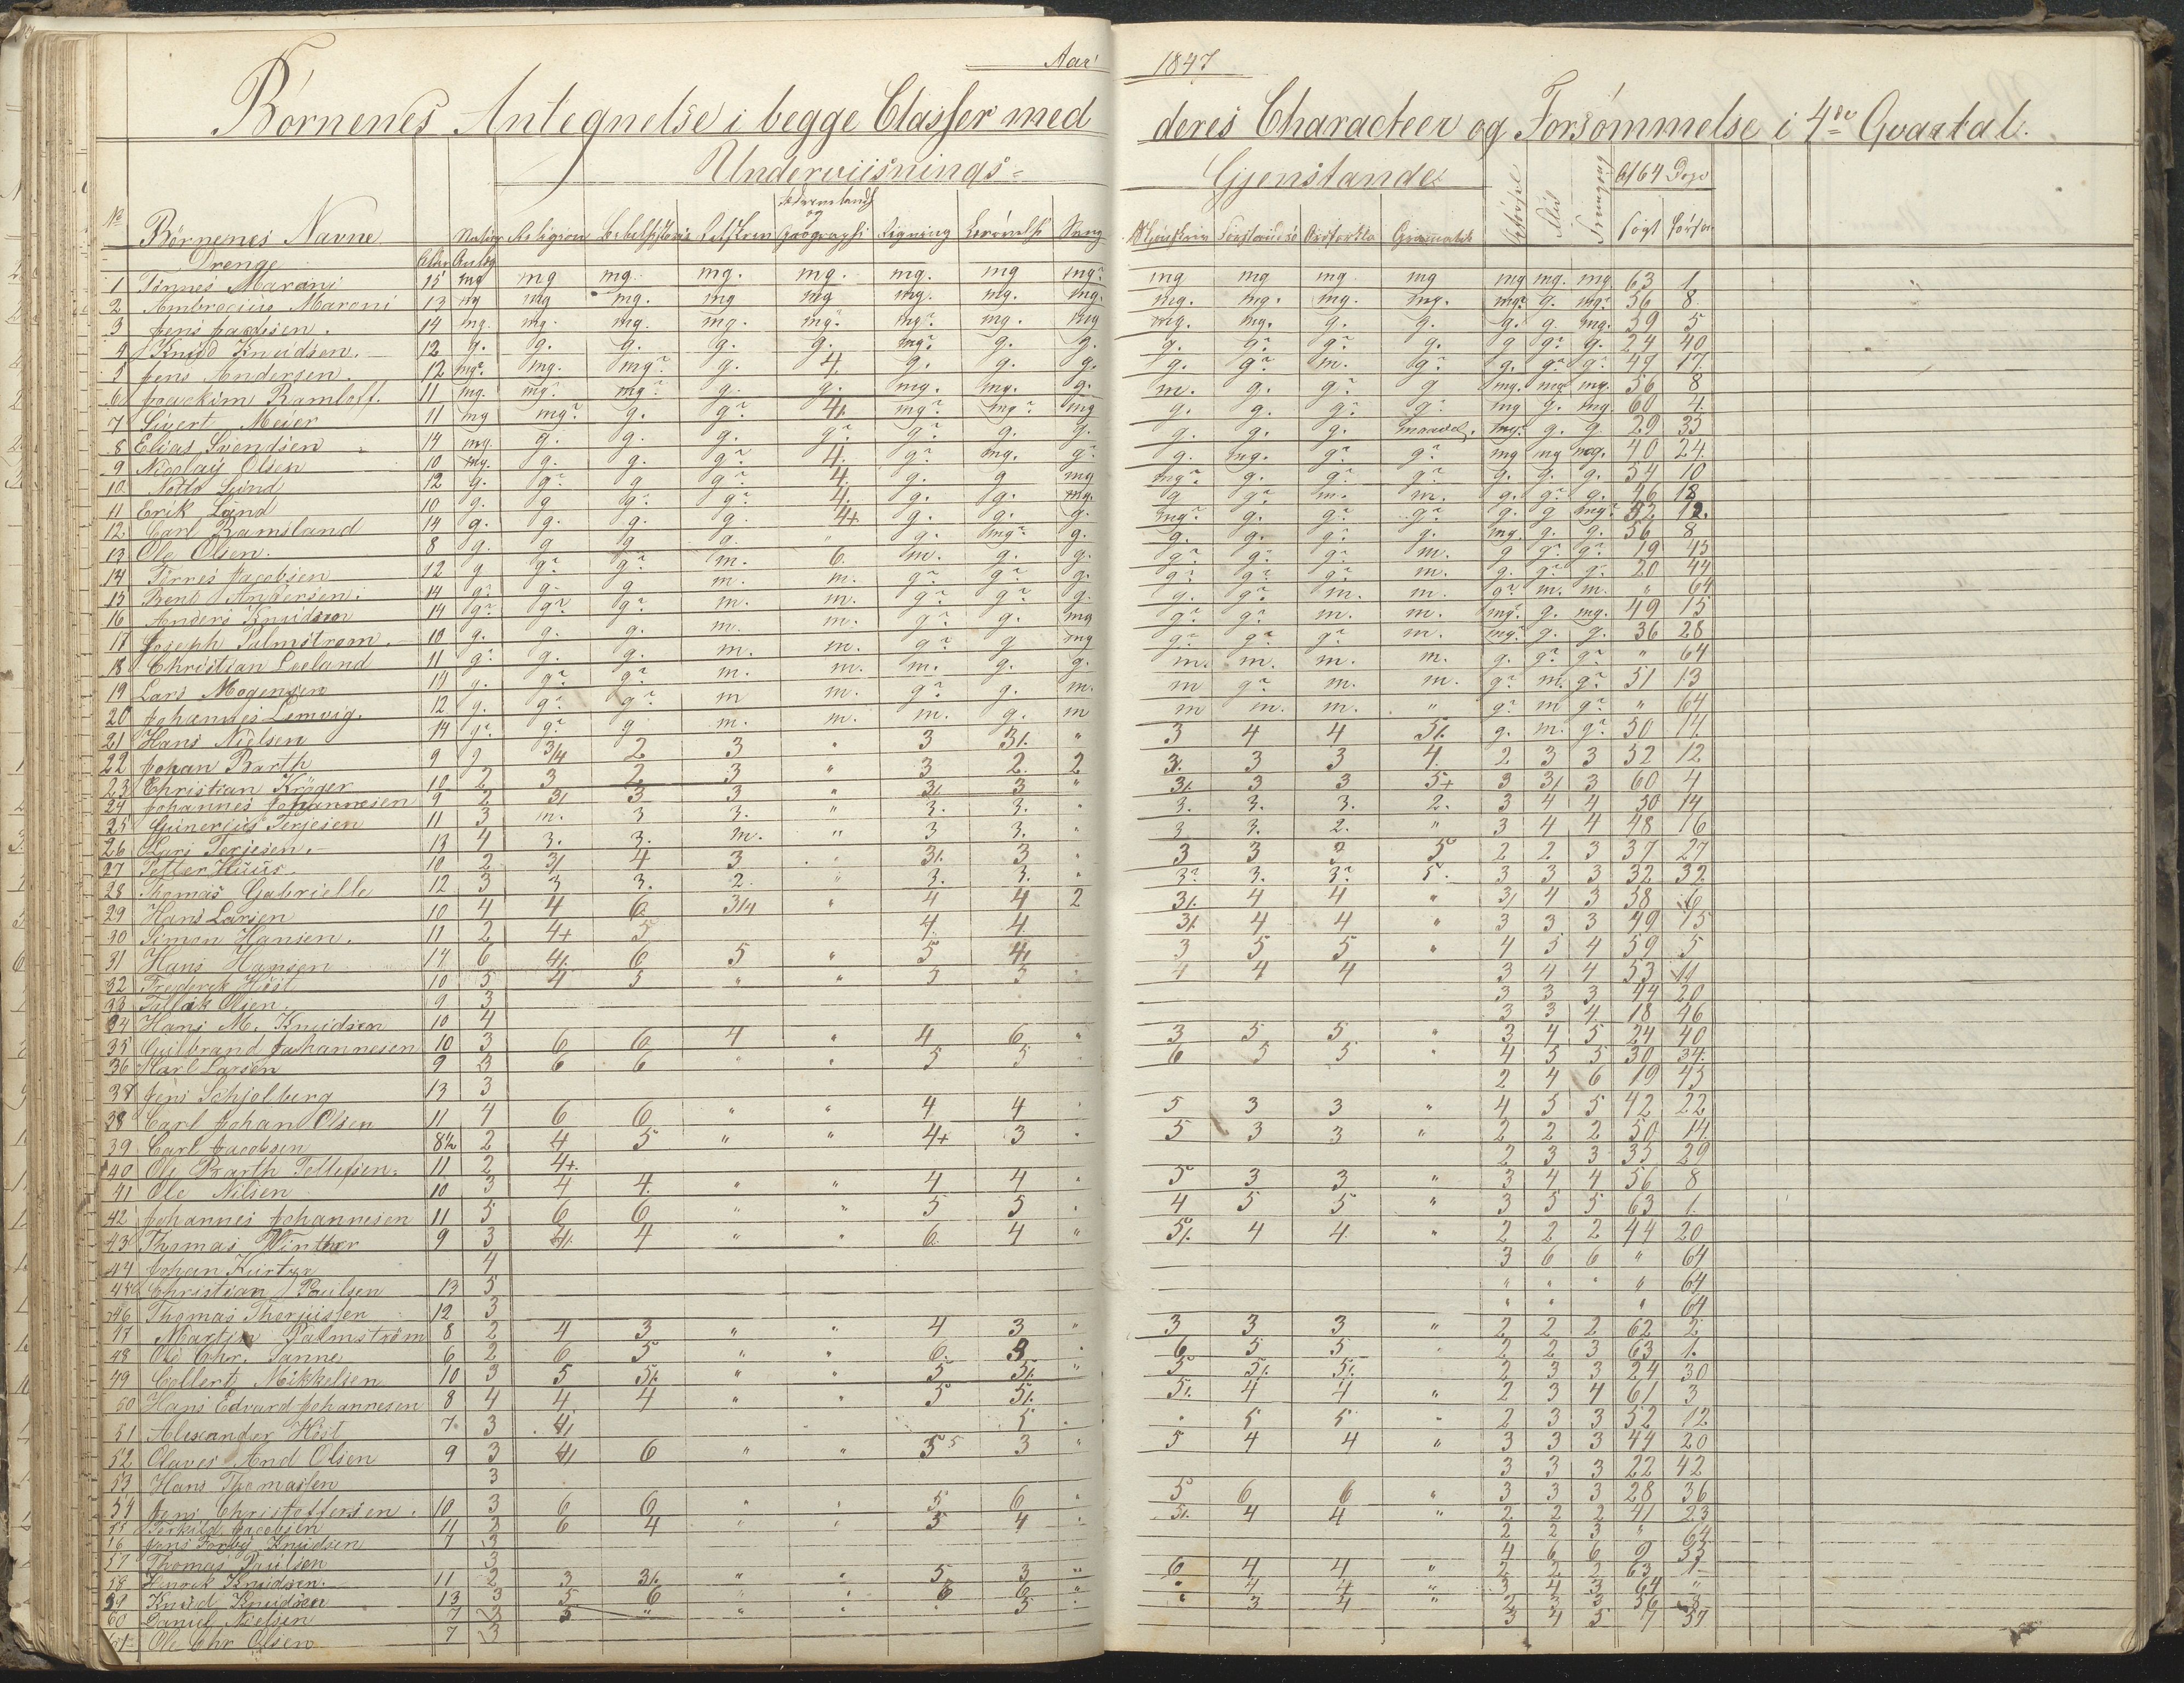 Aar 1847
Børnenes Antegnelse i begge Classer med deres Characteer og Forsømmelse i 4de Qvartal.
Underviisnings= Gjenstande
Fædrenelands og
af 64 Dage
No Børnenes Navne Alder Religion Geographi Regning Sang Grammatik Flid Søgt
Drenge
1 Tønnes Maroni 15 mg mg mg. mg. mg. mg. mg mg? mg mg mg mg mg mg. mg 63 1
2 Ambrosius Maroni 13 mg mg mg. mg mg mg. mg. mg. mg. mg. mg. mg. mg? g. mg? 56 8
3 Jens Jacobsen. 14 mg. mg. mg. mg. mg. mg? mg. mg mg. mg. g. g. g. g. mg. 59 5
4 Knud Knudsen. 12 g. g. g. g. g. mg? g. g. g. g? g? g. g g? g. 24 40
5 Jens Andersen. 12 mg? mg. mg? g. 4. g. g. g. g. g? m. g? g. g? g? 47 17
6 Joackim Ramloff. 11 mg. mg? mg? g. g. mg. mg. g. m. g. g? g mg. mg mg. 56 8
7 Sivert Meier 11 mg mg? g. g? 4. mg? mg? mg g. g. g? g? mg g. mg. 60 4
8 Elias Svendsen 14 mg. g. g. g. g? g? g. g. g. g. g. maadel. mg? g. g 29 35
9 Nicolay Olsen 10 mg. g. g. g? 4. g? mg. g? g. mg. g? g? mg mg mg. 40 24
10 Notto Lund 12 g. g? g g? 4. g. g mg mg? g. g? g? g. g. g. 54 10
11 Erik Lund 10 g. g g? g? 4. g. g. mg. g g? m. m. g. g? g. 46 18
12 Carl Ramsland 14 g. g. g. g. 4+ g. g. g. mg? g. g? g? g. g mg? 52 12.
13 Ole Olsen. 8 g. g g g. " g. mg? g. g. g. g? g. mg. g. g. 56 8
14 Tørres Jacobsen 12 g g? g? m. 6. m. g. g. g? g? g? m. g g? g? 19 45
15 Bent Andersen. 14 g? g. g m. m. g? g? g. g? g? g? m. g. g? g. 20 44
16 Anders Knudsen 14 g? g? g? m. m. g? g? g. g. g? m. m. g? m. m. " 64
17 Joseph Palmstrøm. 10 g. g. g. m. m. g? g. mg g? g? m. m. mg? g. mg. 49 15
18 Christian Leeland 11 g? g. g. m. m. g? g mg g? g? g? m. mg? g. g. 36 28
19 Lars Mogensen 14 g. g? g? m. m. m. g. g. m. m. m. m. g. g? g? " 64
20 Johannes Lemvig. 12 g. g? g? m m. g? g. m. m g? m. m. g? m. g? 51 13
21 Hans Nielsen 14 g? g? g m. m. m. g. m m m. m. " g? m g? " 64
22 Johan Barth 9 g 3/4 2 3 " 3 3/. " 3 4 4 5/. g. m. g? 50 14
23 Christian Krøger 10 2 3 2 3 " 3 2. 2 3. 3 3 4. 2 3 3 52 12
24 Johannes Johannesen 9 2 3/ 3 3 " 3/. 3 " 3/. 3 3 5+ 3 3/ 3 60 4
25 Gunerius Terjesen 11 3 m. 3 3. " 3. 3. " 3. 3. 3. 2. 3 4 4 50 14
26 Lars Terjesen. 13 4 3. 3. m. " 3 3. " 3 3. 2. " 3 4 4 48 16
27 Petter Huus. 10 2 3/ 4 3 " 3/. 3 " 3 3 3 5 2 2 3 37 27
28 Thomas Gabrielle 12 3 3 3. 2. " 3. 3. " 3? 3. 3? 5. 3 3 3 32 32
29 Hans Larsen 10 4 4 6. 3/4 " 4 4 2 3/. 4 4 " 3/ 4 3 58 6
30 Simon Hansen. 11 2 4+ 5 4. 4. 3/. 4 4 " 3 3 3 49 15
31 Hans Hansen 14 6 4/. 6 5 " 5 4/ 3 5 5 " 4 5 4 59 5
32 Frederik Høst 10 5 4 5 " " 5 5 " 4 4 4 3 4 4 53 11
33 Tellak Olsen. 9 3 3 3 3 44 20
34 Hans M. Knudsen 10 4 3 3 4 18 46
35 Gulbrand Johannesen 10 3 6 6 4 " 4 6 " 3 5 5 " 3 4 5 24 40
36 Karl Larsen 9 3 6 6 " " 5 5 " 6 5 5 " 4 5 5 30 34.
37 Jens Schjølberg 13 3 2 4 6 19 45
38 Carl Johan Olsen 11 4 6 6 " " 4 4 " 5 3 3 " 4 5 5 42 22
39 Carl Jacobsen 8½ 2 4 5 " " 4+ 3 " 5 3 3 " 2 2 2 50 14.
40 Ole Barth Tellefsen. 11 2 4+. 2 3 3 35 29
41 Ole Nilsen 10 3 4 4. " " 4 4 " 5 3 3 " 3 4 4 56 8
42 Johannes Johannesen 11 5 6 6 " " 5 5 " 4 5 5 " 3 5 5 63 1.
43 Thomas Winther 9 3 4/. 4 " " 6. 4 " 5/. 4 4. " 2 2 2 44 20
44 Johan Kurtzr 4 3 6 6 " 64
45 Christian Paulsen 13 5 " " " " 64
46 Thomas Thorjussen 12 3 " " " 64
47 Martin Palmstrøm 8 2 4 3 " " 4 3 " 3 3 3 " 2 2 2 62 2
48 Ole Chr. Sanne 6 2 6 5 " " 6. 3 " 6 5 5 " 2 2 3 63 1.
49 Collert Mikkelsen 10 3 5 5/. " " 5 5/. " 5 5/. 5/. 2 3 3 24 30
50 Hans Edvard Johannesen 8 4 4 4 " " 5 5/. 5/. 4 4 " 2 3 4 61 3
51 Alexander Høst 7 3 4/ 5 " " 5 5 " 2 3 3 52 12
52 Olaves And Olsen 9 3 4/ 6 " " 5 5 3 " 5 4 4 " 3 3 3 44 20
53 Hans Thomassen 3 3 3 3 22 42
54 Jens Christoffersen. 10 3 6 6 " " 5 6 " 5 6 6 " 3 3 3 28 36
55 Terkild Jacobsen 11 3 6 4 " " 5 4 " 5/. 4 4 " 2 2 2 41 23
56 Jens Knudsen 7 3 2 2 3 " 64
57 Thomas Paulsen 3 4 6 6 9 55
58 Henrik Knudsen. 11 2 3 3/. " " 5 3 " 6 4 4 " 2 2 2 63 1
59 Knud Knudsen 13 3 5 6 " " 6 6 " " 4 4 " 3 4 3 64 "
60 Daniel Nielsen 7 3 5 " " " 5 " " 3 4 " 2 3 3 56 8
61 Ole Chr Olsen 7 3 3 4 5 7 57